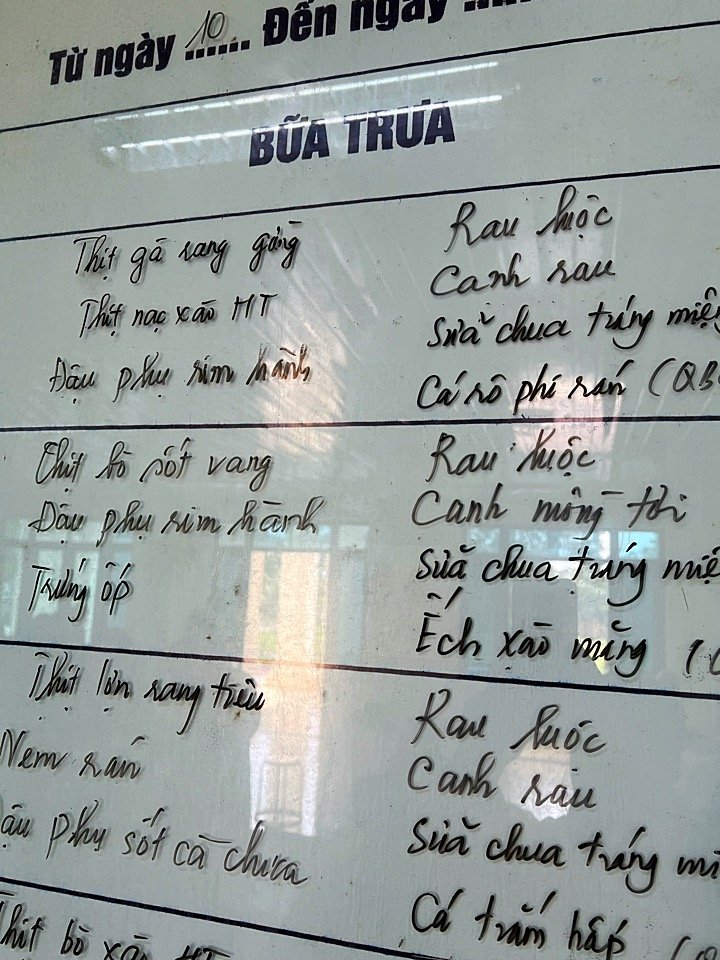 Từ ngày 10 Đến ngày
BỮA TRƯA
Thịt gà rang gừng
Thịt nạc xào HT
Đậu phụ rim hành
Rau luộc
Canh rau
Sữa chua tráng miệ
Cá rô phi rán (QB
Thịt bò sốt vang
Đậu phụ rim hành
Trứng ốp
Rau luộc
Canh mồng tơi
Sữa chua tráng miệ
Ếch xào măng (
Thịt lợn rang
Nem rán
ậu phụ sốt cà chua
Rau luộc
Canh rau
Sữa chua tráng mi
Cá trắm hấp (
Thịt bò xào